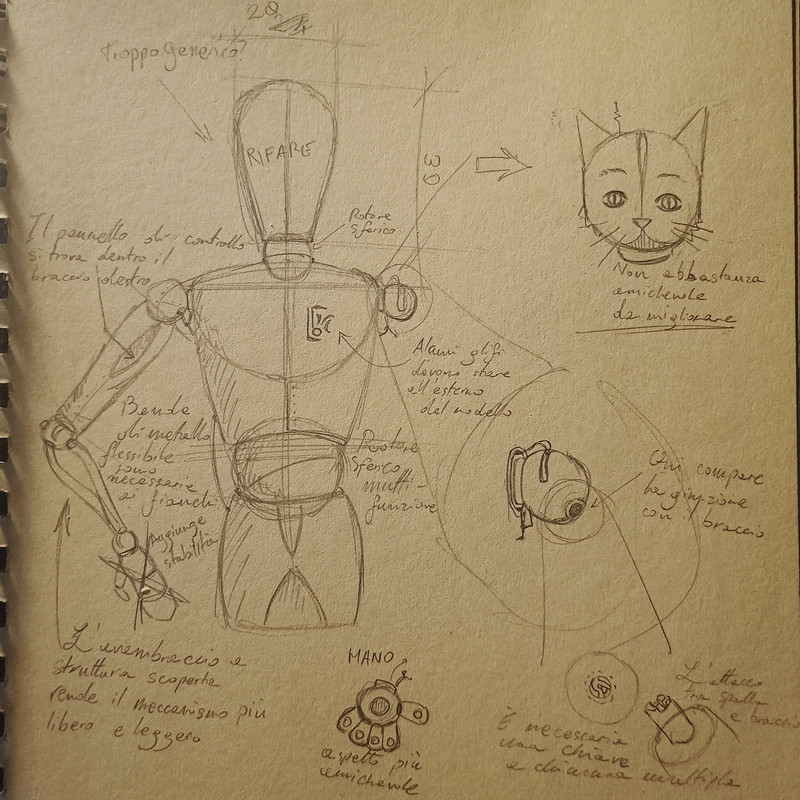 Troppo generico?
RIFARE
30
Rotore
sferico
Il pannello di controllo
si trova dentro il
braccio destro
Non abbastanza
amichevole
da migliorare
Alcuni glifi
devono stare
all'esterno
del modello
Bende
di metallo
flessibile
sono
necessarie
ai fianchi
Rotore
sferico
multi-
funzione
Qui compare
la giunzione
con il braccio
Aggiunge
stabilità
L'avambraccio a
struttura scoperta
rende il meccanismo più
libero e leggero
MANO
aspetto più
amichevole
L'attacco
tra spalla
e braccio
È necessaria
una chiave
a chiusura multipla